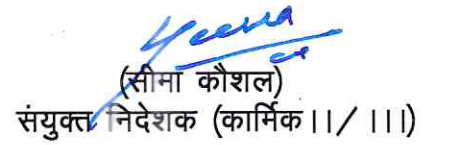 (सीमा कौशल)
संयुक्त निदेशक (कार्मिक।।/ ।।।)